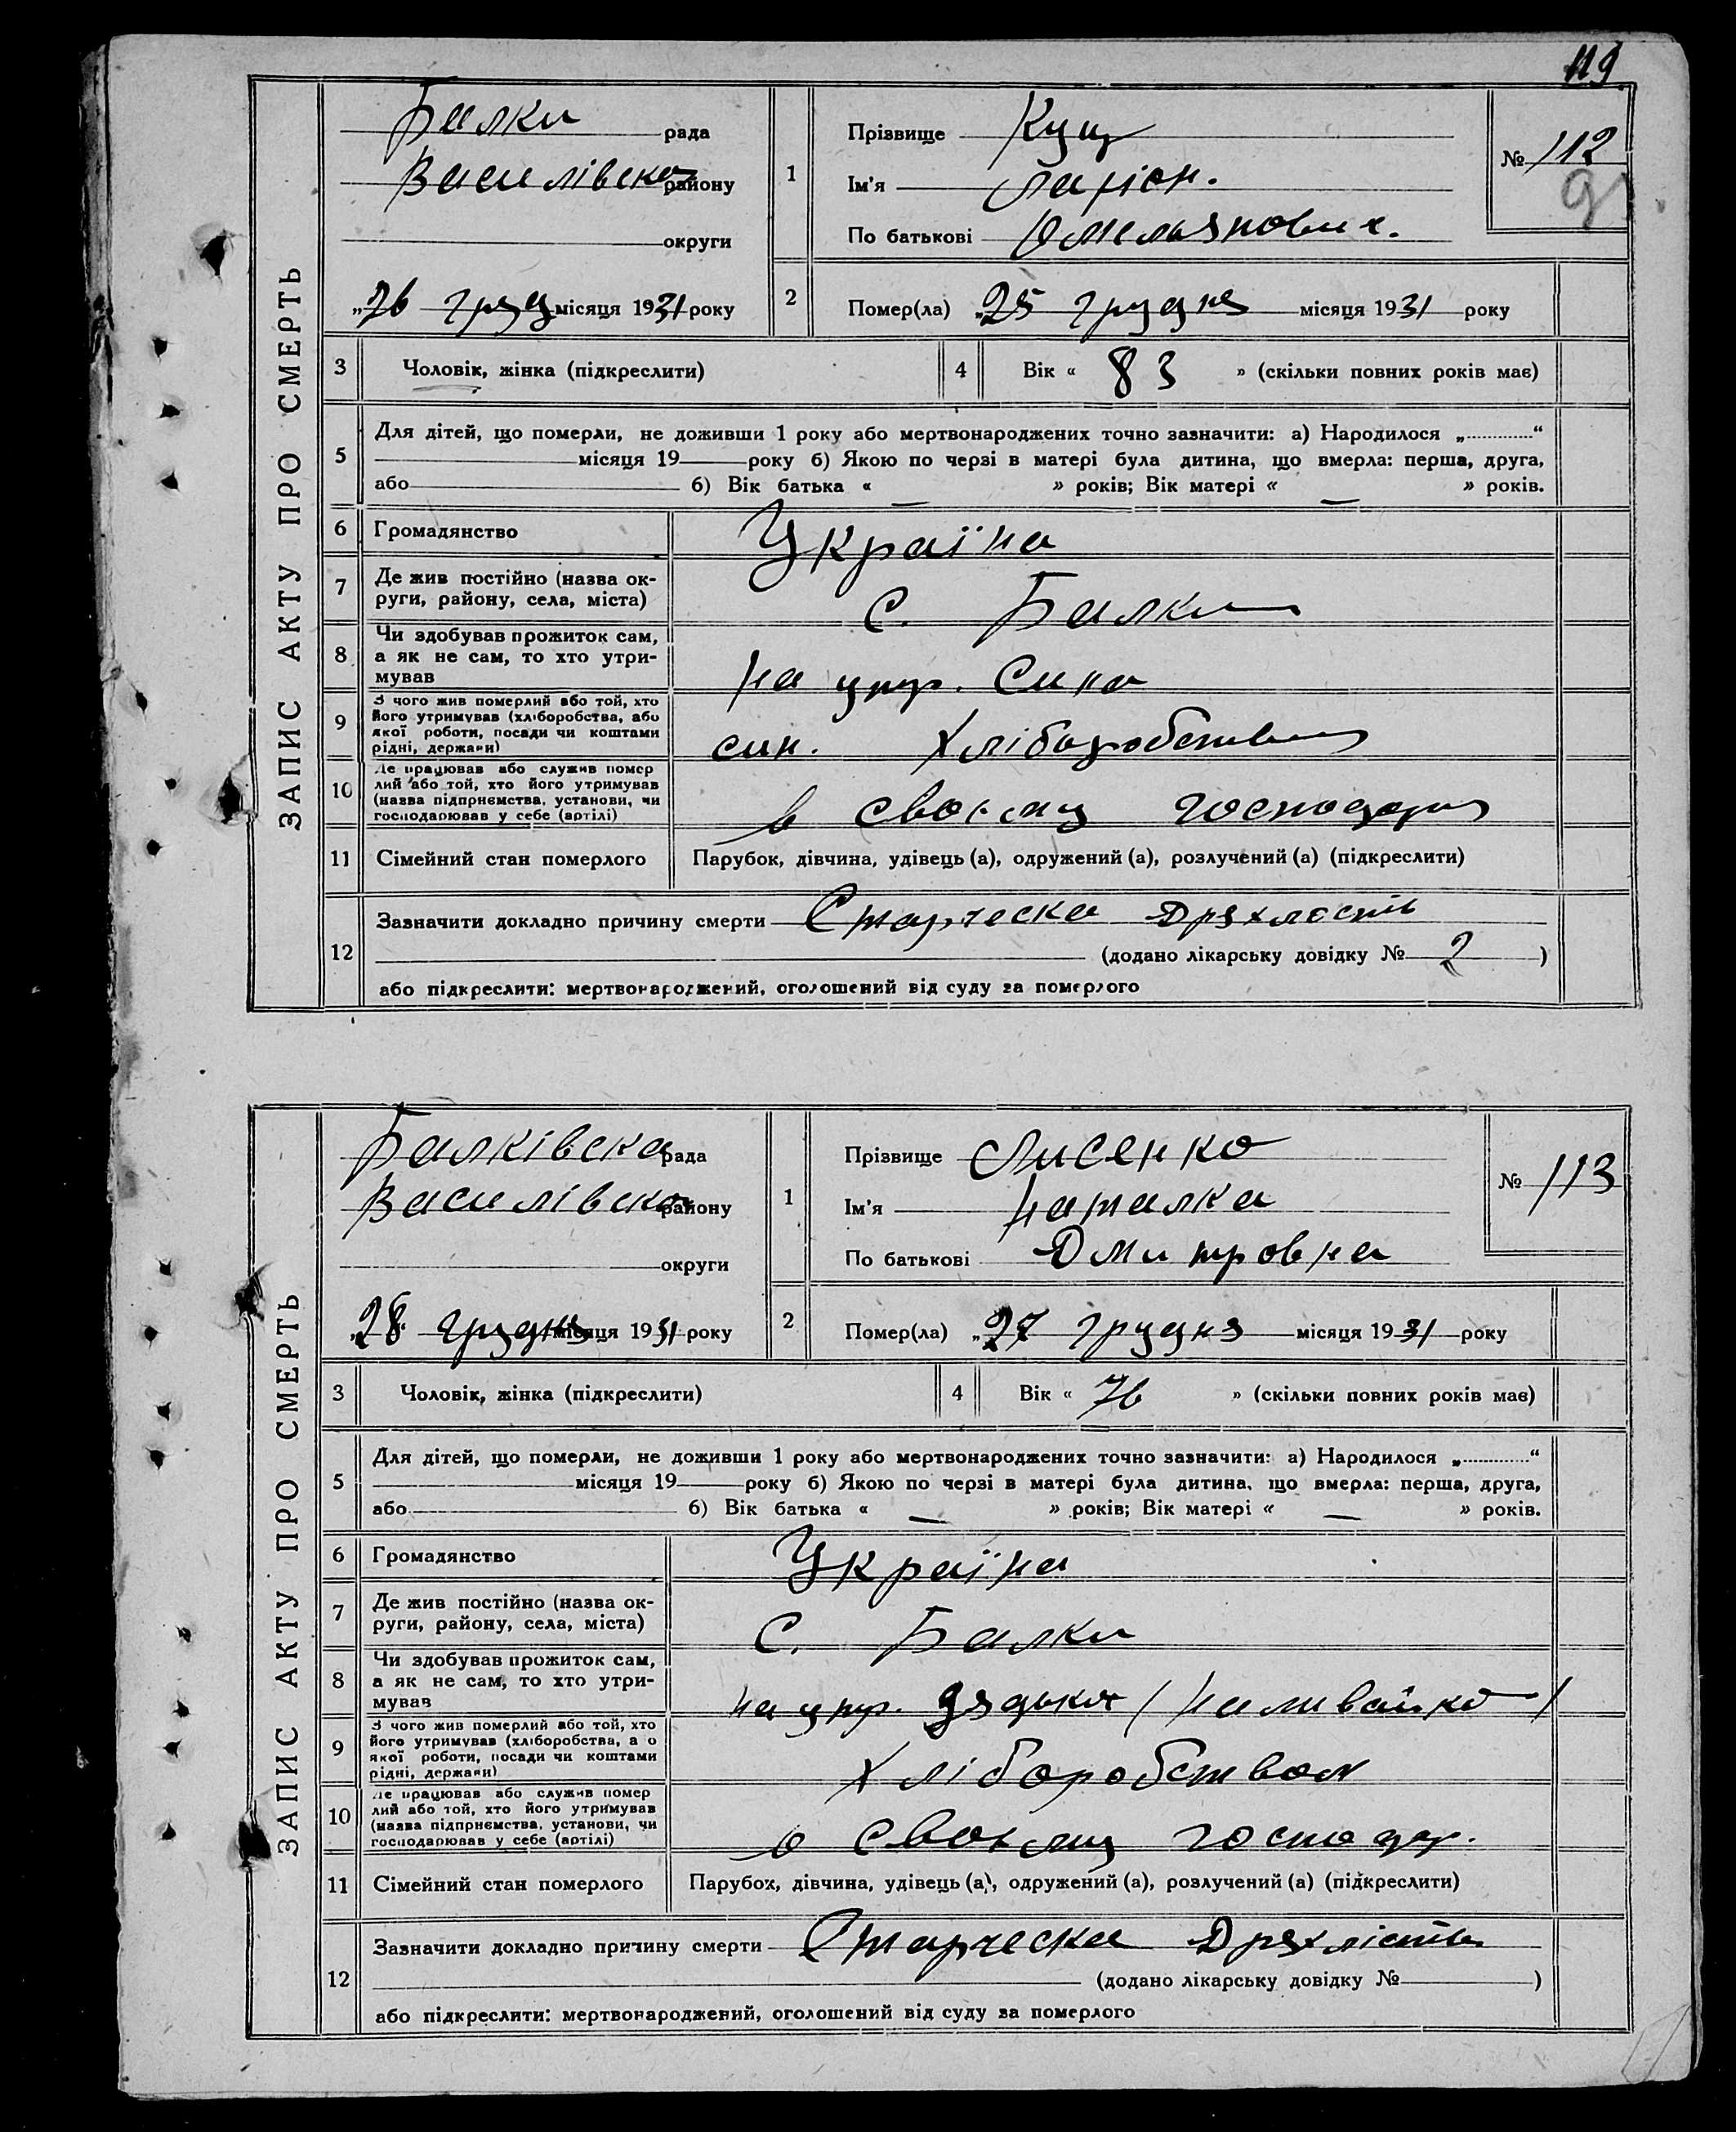 119
ЗАПИС АКТУ ПРО СМЕРТЬ
Балки рада
Василівська району
округи
„26 груд місяця 1931 року
1
Прізвище Кущ
Ім'я Ларіон.
По батькові Омельянович.
№ 112
2
Помер(ла) „25 грудня місяця 1931 року
3 Чоловік, жінка (підкреслити)
4 Вік « 83 » (скільки повних років має)
5 Для дітей, що померли, не доживши 1 року або мертвонароджених точно зазначити: а) Народилося „ “
місяця 19 року б) Якою по черзі в матері була дитина, що вмерла: перша, друга,
або б) Вік батька « — » років; Вік матері « — » років.
6 Громадянство Україна
7 Де жив постійно (назва ок-
руги, району, села, міста) С. Балки
8 Чи здобував прожиток сам,
а як не сам, то хто утри-
мував на утр. Сина
9 З чого жив померлий або той, хто
його утримував (хліборобства, або
якої роботи, посади чи коштами
рідні, держави) син. Хліборобством
10 Де працював або служив помер
лий або той, хто його утримував
(назва підприємства, установи, чи
господарював у себе (артілі) в своєму господар
11 Сімейний стан померлого Парубок, дівчина, удівець (а), одружений (а), розлучений (а) (підкреслити)
12 Зазначити докладно причину смерти Старческа Дряхлость
(додано лікарську довідку № 2 )
або підкреслити: мертвонароджений, оголошений від суду за померлого
ЗАПИС АКТУ ПРО СМЕРТЬ
Балківска рада
Василівська району
округи
„28“ грудня місяця 1931 року
1
Прізвище Лисенко
Ім'я Наталка
По батькові Дмитровна
№ 113
2
Помер(ла) „27 грудня місяця 1931 року
3 Чоловік, жінка (підкреслити)
4 Вік « 76 » (скільки повних років має)
5 Для дітей, що померли, не доживши 1 року або мертвонароджених точно зазначити: а) Народилося „ “
місяця 19 року б) Якою по черзі в матері була дитина, що вмерла: перша, друга,
або б) Вік батька « — » років; Вік матері « — » років.
6 Громадянство Україна
7 Де жив постійно (назва ок-
руги, району, села, міста) С. Балки
8 Чи здобував прожиток сам,
а як не сам, то хто утри-
мував на утр. дядька / Наливайко /
9 З чого жив померлий або той, хто
його утримував (хліборобства, або
якої роботи, посади чи коштами
рідні, держави) Хліборобством
10 Де працював або служив помер
лий або той, хто його утримував
(назва підприємства, установи, чи
господарював у себе (артілі) в своєму господар.
11 Сімейний стан померлого Парубок, дівчина, удівець (а), одружений (а), розлучений (а) (підкреслити)
12 Зазначити докладно причину смерти Старческа Дряхлість
(додано лікарську довідку № )
або підкреслити: мертвонароджений, оголошений від суду за померлого